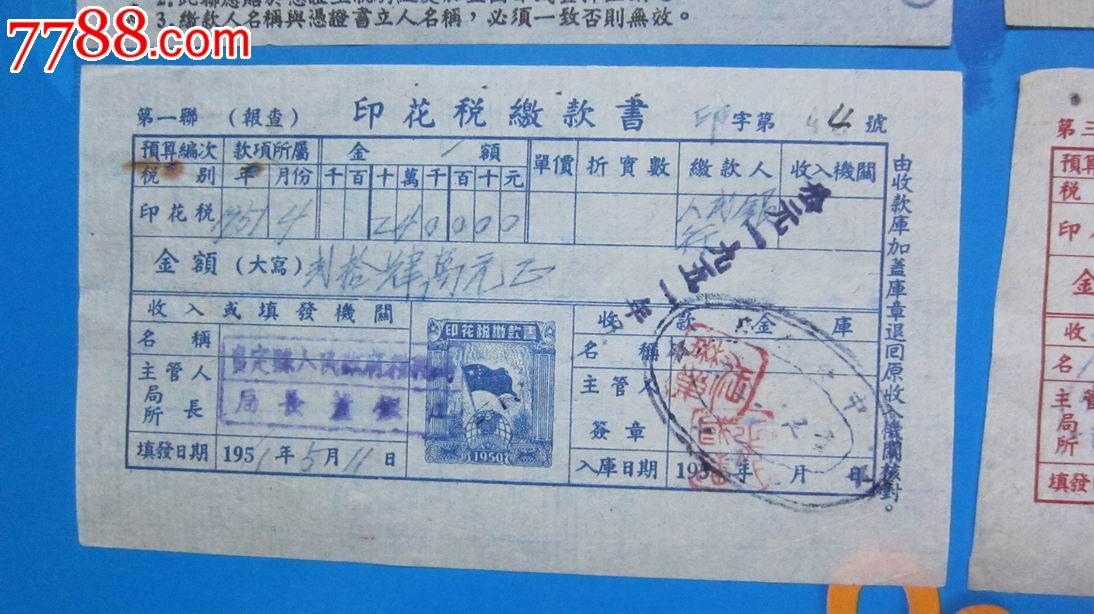 2.此聯應
3.繳款人名稱與憑證書立人名稱，必須一致否則無效。
7788.com
印花税繳款書
第一聯 (報查) 印字第 44 號
預算編次 款項所屬 金額 單價 折實數 繳款人 收入機關
税別 年 月份 千百十萬千百十元
印花税 1951 4 240000 人民銀行
金額(大寫) 貳拾肆萬元正
收入或填發機關 收款金庫
名稱 名稱
主管人 主管人
局所長 簽章
縣人民政府
局長
填發日期 1951年5月11日 入庫日期 195 年 月 日
印花税繳款書
1950
一九五一年
由收款庫加蓋庫章退回原收入機關核對。
第三
預算
税
印
金
收
名
主
局
所
填發日